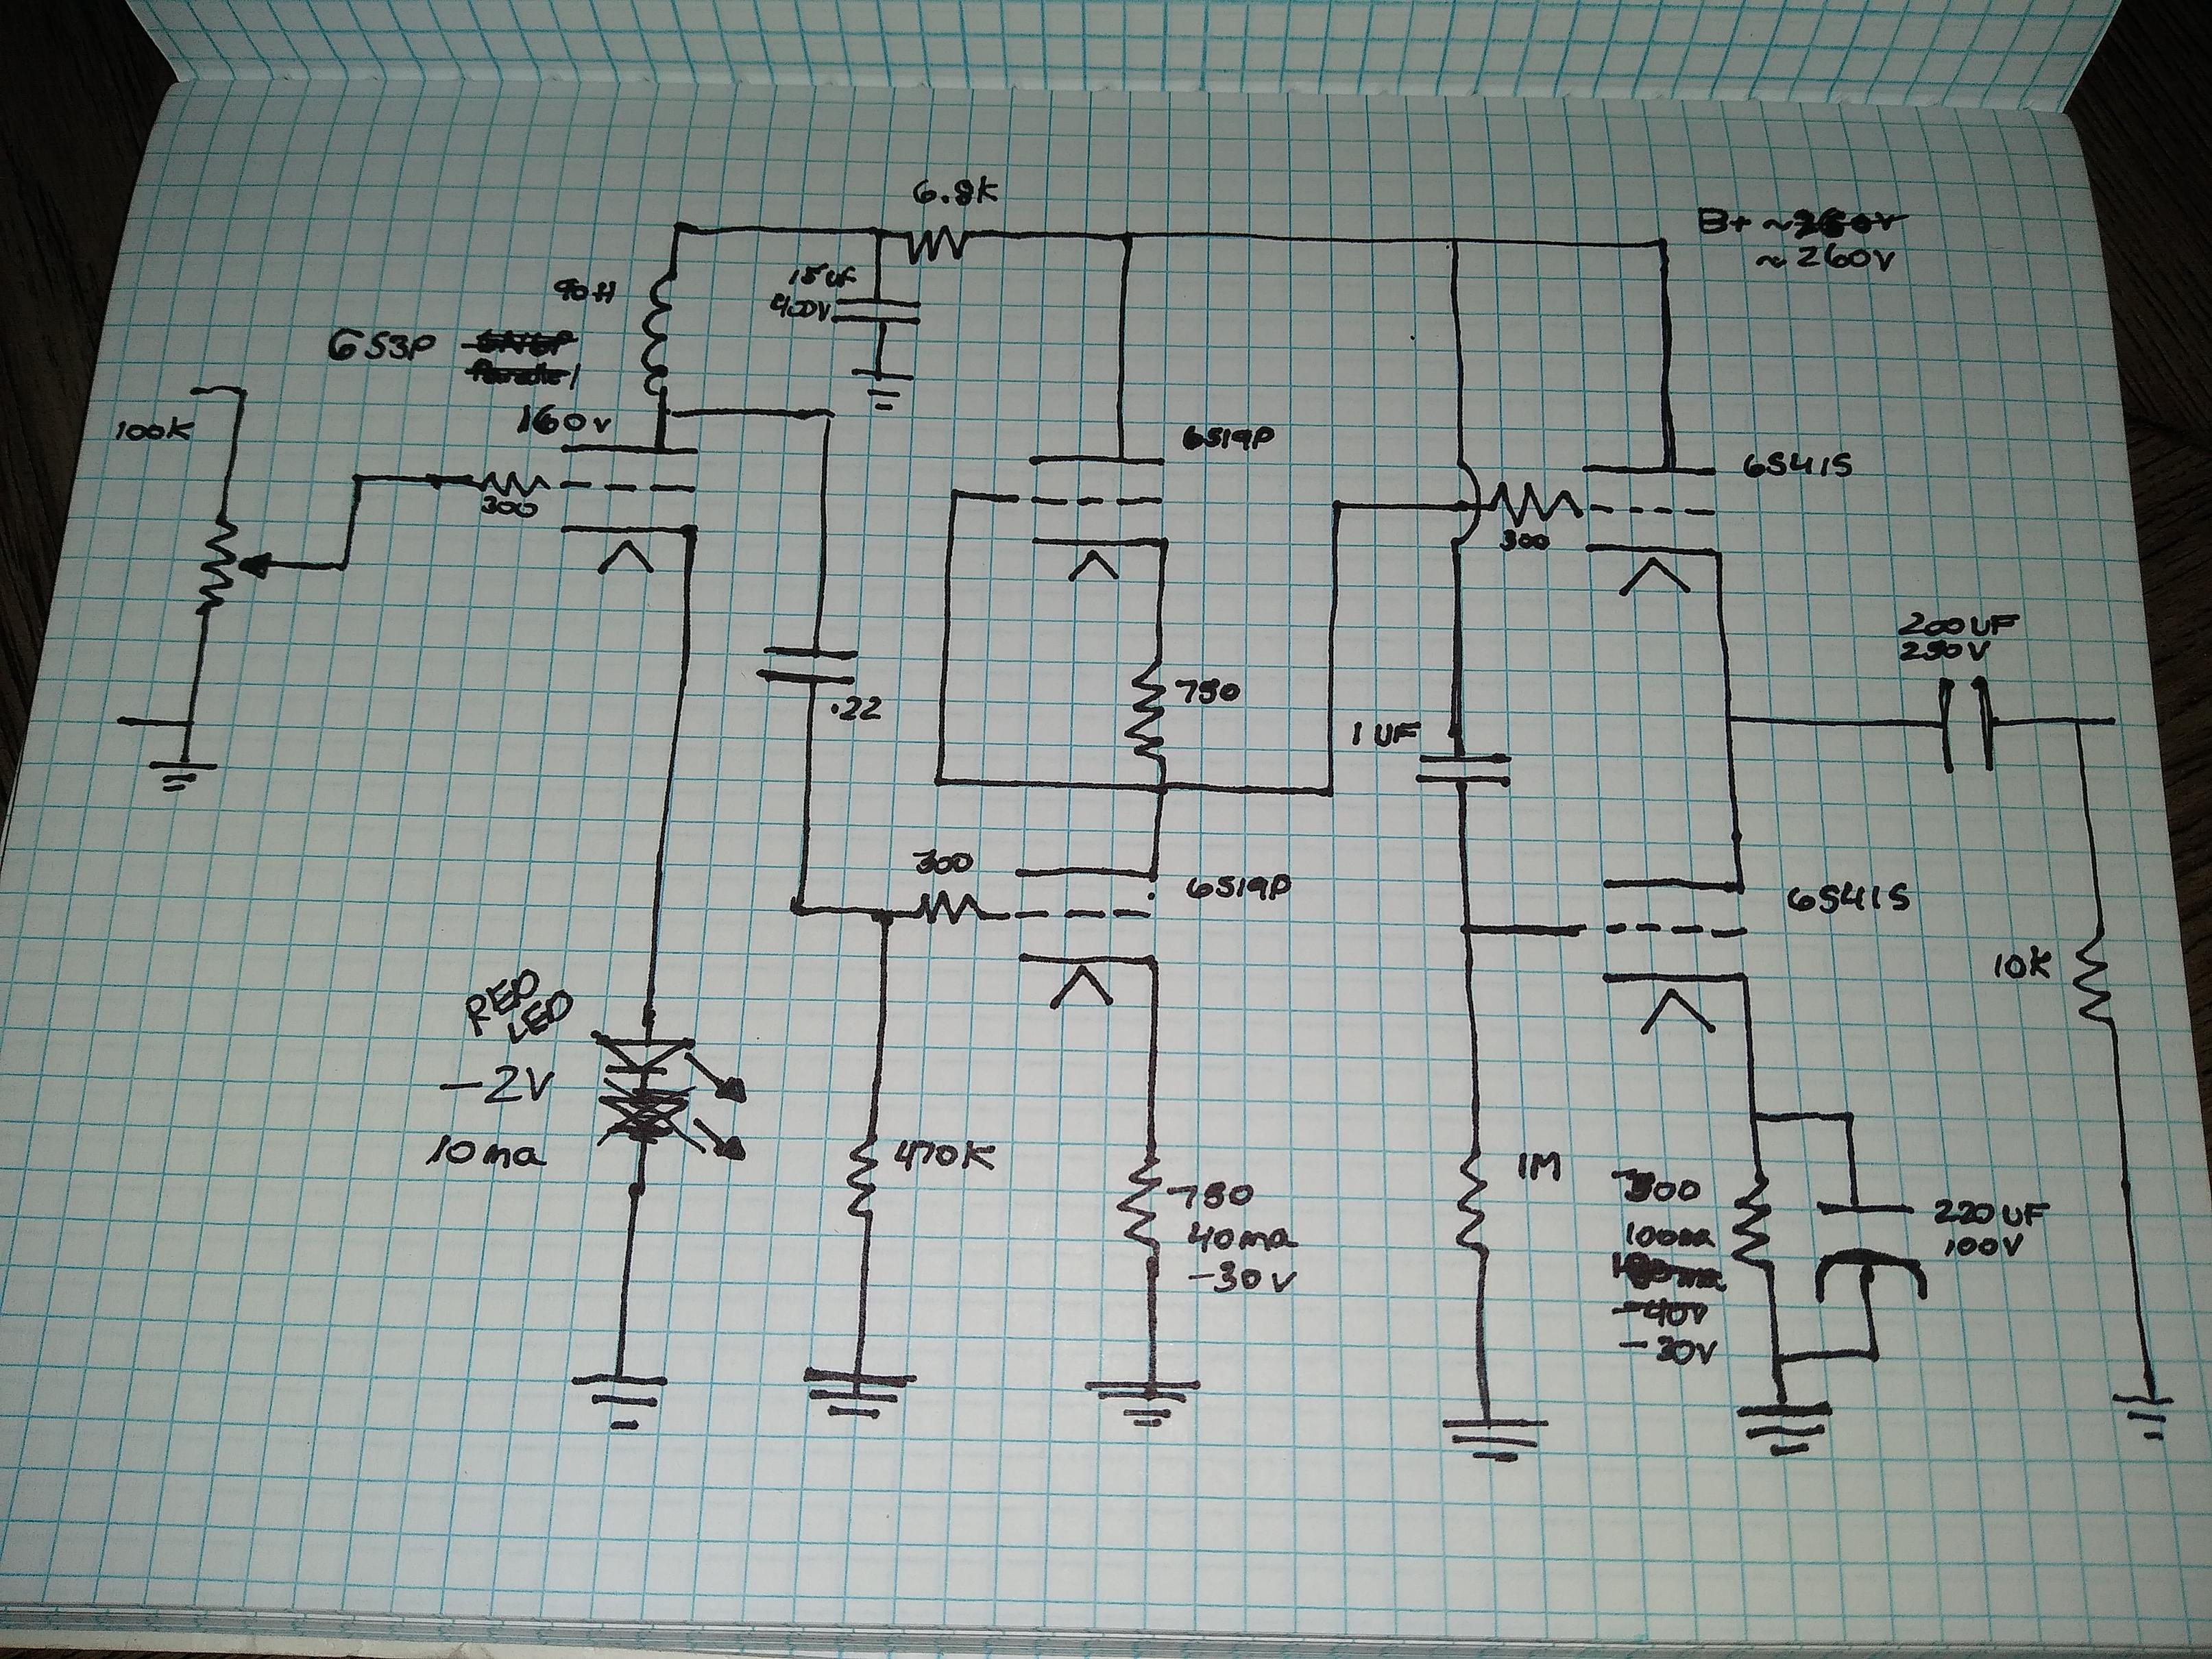 6.8K
B+ ~260V
~260V
90H
15UF
400V
6S3P 6N6P
Parallel
160V
100K
300
6S19P
6S41S
300
200UF
250V
750
.22
1UF
300
6S19P
6S41S
10K
RED
LED
-2V
10ma
470K
750
40ma
-30V
1M
300
100ma
-40V
-30V
220UF
100V